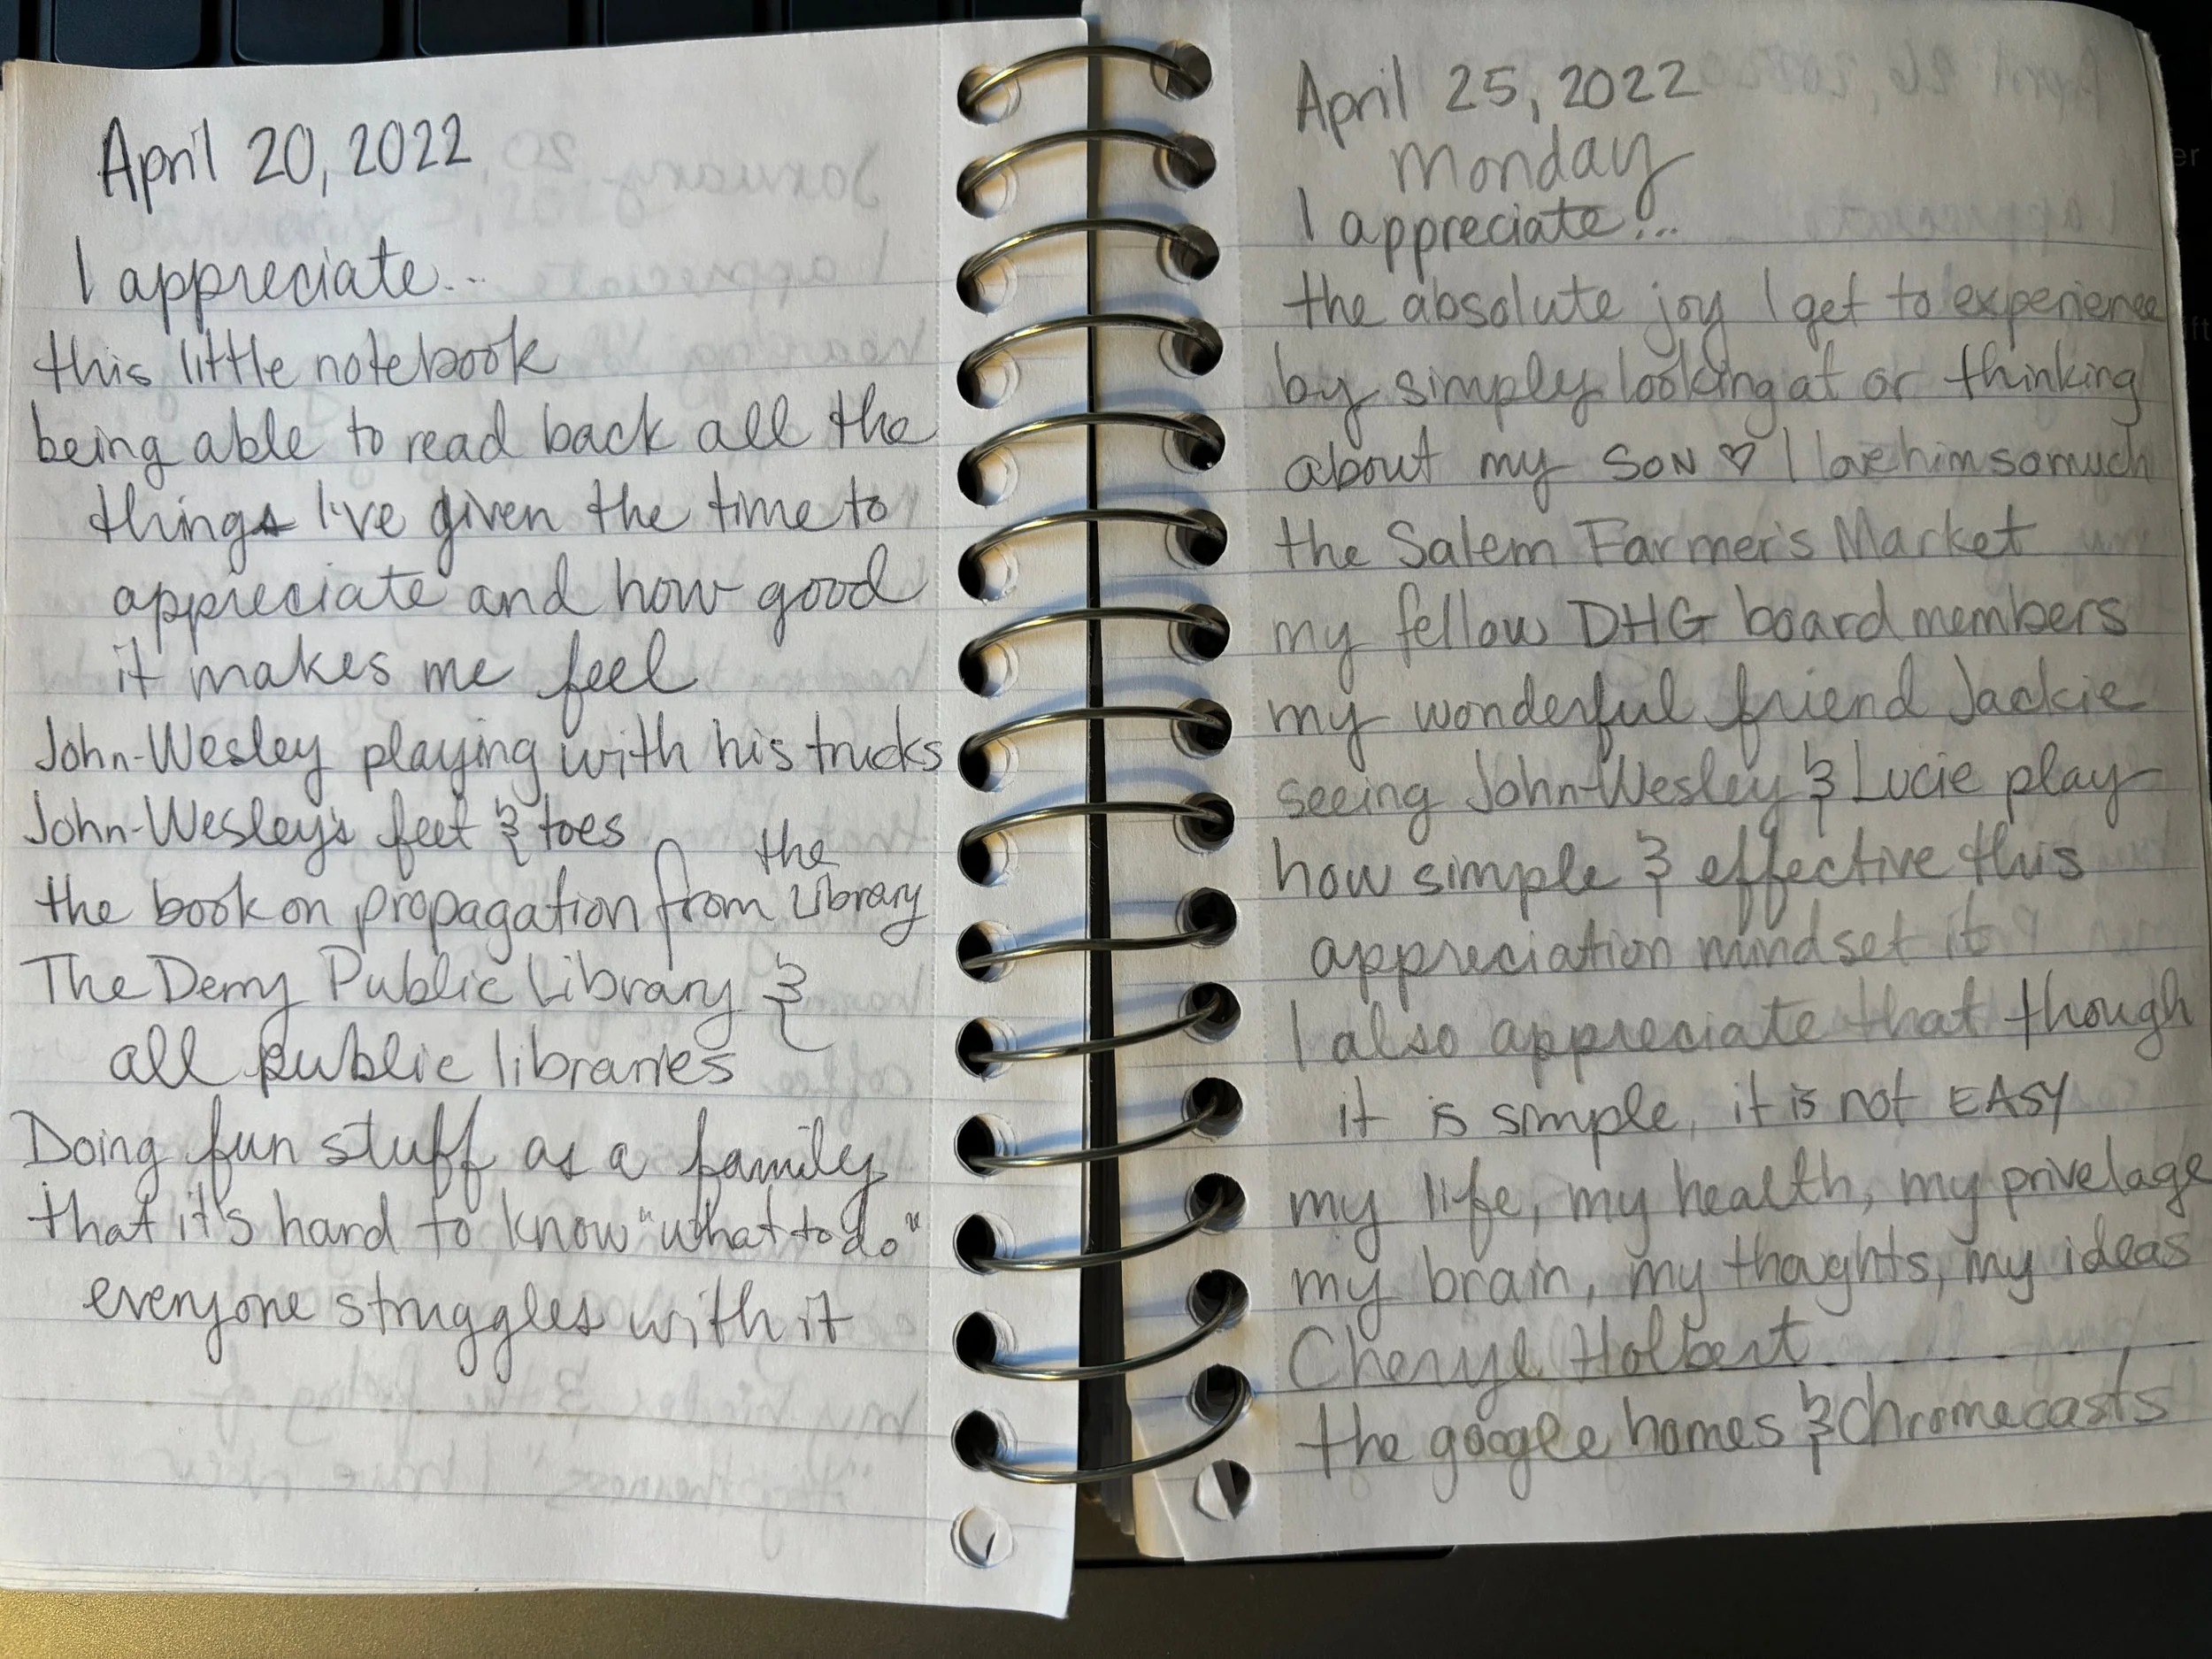 April 20, 2022
I appreciate...
this little notebook
being able to read back all the
things I've given the time to
appreciate and how good
it makes me feel
John-Wesley playing with his trucks
John-Wesley's feet & toes
the book on propagation from the Library
The Derry Public Library &
all public libraries
Doing fun stuff as a family
that it's hard to know "what to do"
everyone struggles with it
April 25, 2022
Monday
I appreciate...
the absolute joy I get to experience
by simply looking at or thinking
about my SON ♡ I love him so much
the Salem Farmer's Market
my fellow DHG board members
my wonderful friend Jackie
seeing John-Wesley & Lucie play
how simple & effective this
appreciation mindset it
I also appreciate that though
it is simple, it is not EASY
my life, my health, my privelage
my brain, my thoghts, my ideas
Cheryl Holbert
the google homes & Chromecasts